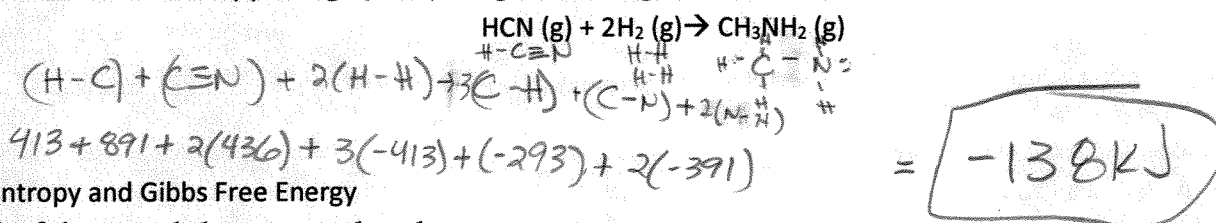 HCN (g) + 2H₂ (g)→ CH₃NH₂ (g)
H-C≡N H-H H-H H-C-N: H H H H
(H-C) + (C≡N) + 2(H-H) + 3(C-H) + (C-N) + 2(N-H)
413 + 891 + 2(436) + 3(-413) + (-293) + 2(-391) = -138kJ
ntropy and Gibbs Free Energy